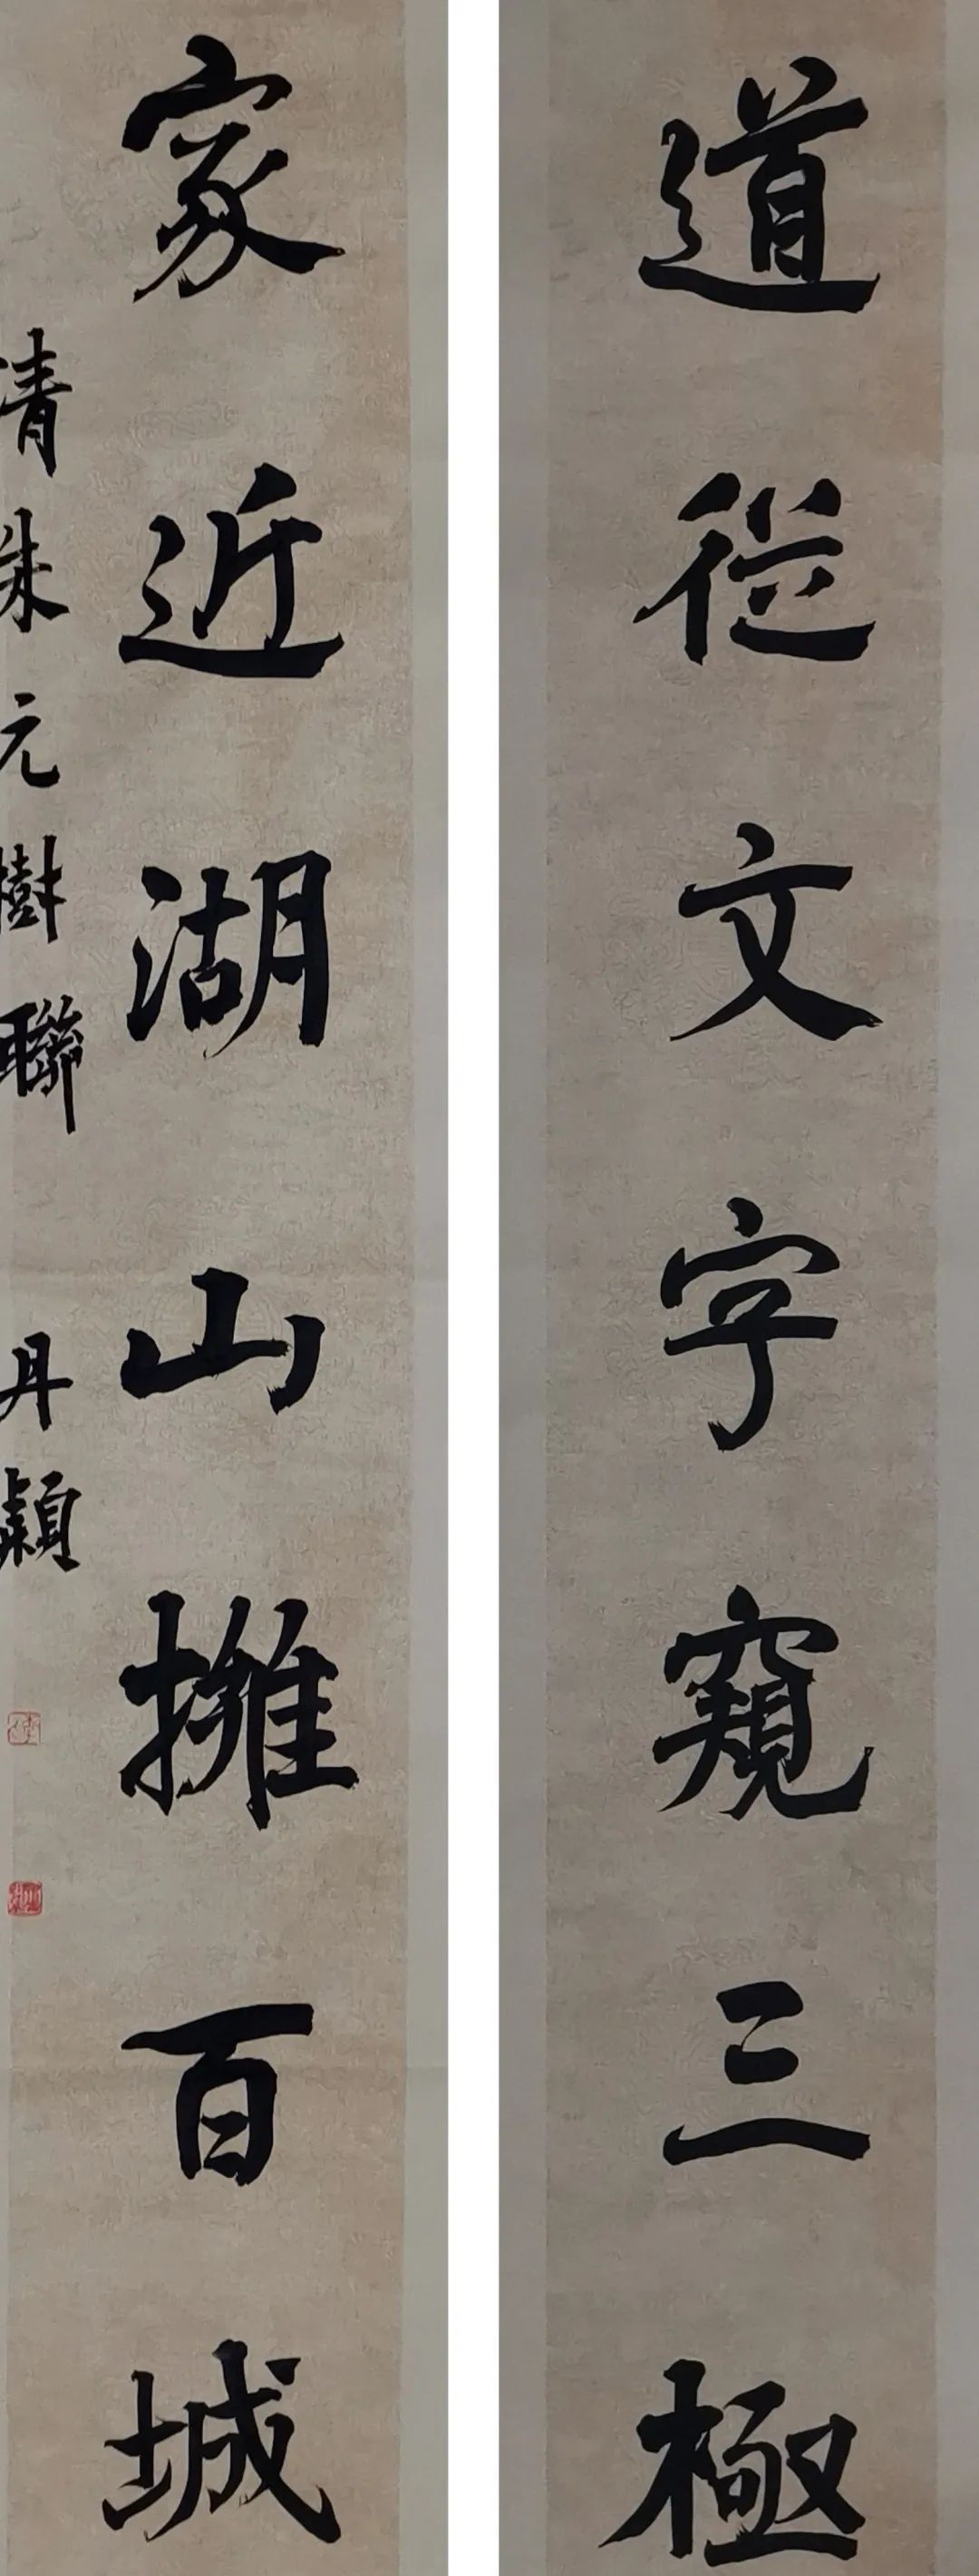 道從文字窺三極
家近湖山擁百城
清朱元樹聯 丹穎